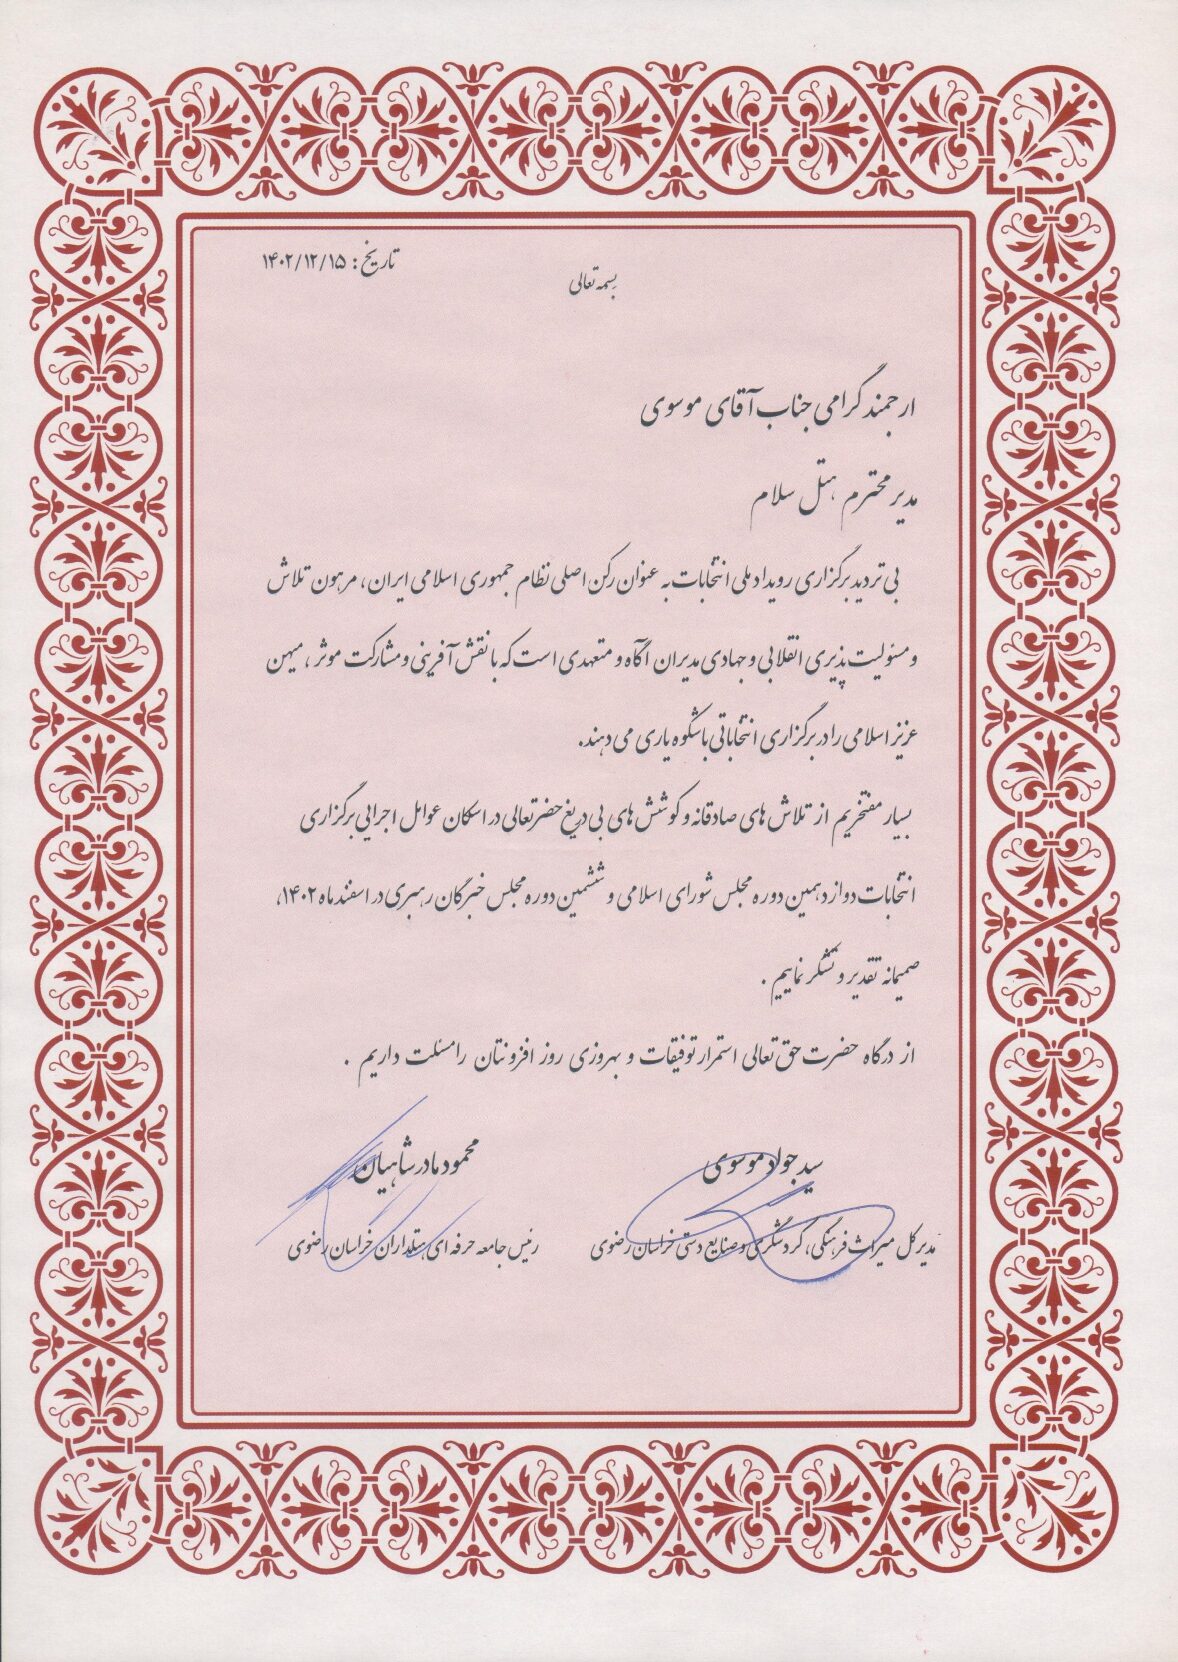 تاریخ: ۱۴۰۲/۱۲/۱۵
بسمه تعالی
ارجمند گرامی جناب آقای موسوی
مدیر محترم هتل سلام
بی تردید برگزاری رویداد ملی انتخابات به عنوان رکن اصلی نظام جمهوری اسلامی ایران، مرهون تلاش
و مسئولیت پذیری انقلابی و جهادی مدیران آگاه و متعهدی است که با نقش آفرینی و مشارکت موثر، میهن
عزیز اسلامی را در برگزاری انتخاباتی باشکوه یاری می دهند.
بسیار مفتخریم از تلاش های صادقانه و کوشش های بی دریغ حضرتعالی در اسکان عوامل اجرایی برگزاری
انتخابات دوازدهمین دوره مجلس شورای اسلامی و ششمین دوره مجلس خبرگان رهبری در اسفند ماه ۱۴۰۲،
صمیمانه تقدیر و تشکر نماییم .
از درگاه حضرت حق تعالی استمرار توفیقات و بهروزی روز افزونتان را مسئلت داریم .
سید جواد موسوی
مدیر کل میراث فرهنگی، گردشگری و صنایع دستی خراسان رضوی
محمود مادرشاهیان
رئیس جامعه حرفه ای هتلداران خراسان رضوی